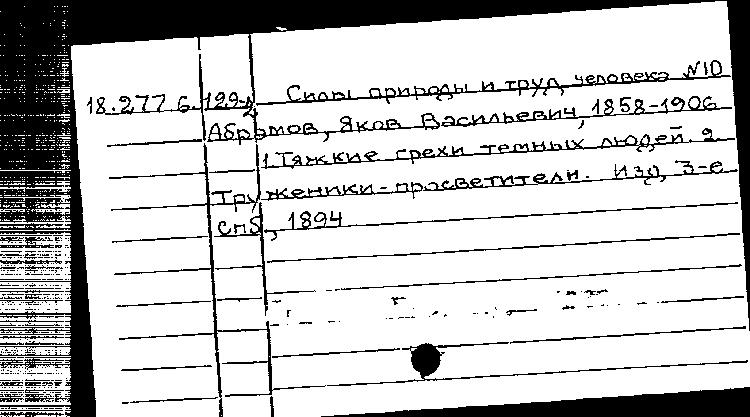 18.277 б. 129-д Силы природы и труд человека №10
Абрамов, Яков Васильевич, 1858-1906
1. Тяжкие грехи темных людей. 2
Труженики-просветители. Изд, 3-е
Спб, 1894